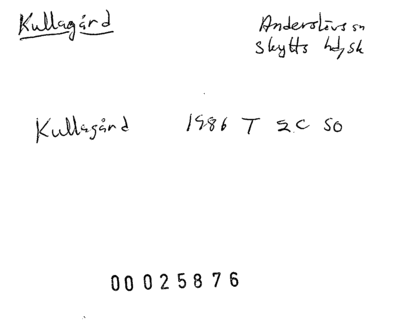 Kullagård
Anderslövs sn
Skytts hd, Sk
Kullagård 1986 T EC SO
00025876